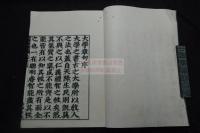 大學章句序
大學之書古之大學所以教人
之法也蓋自天降生民則既莫
不與之以仁義禮智之性矣然
其氣質之稟或不能齊是以不
能皆有以知其性之所有而全
之也一有聰明睿智能盡其性